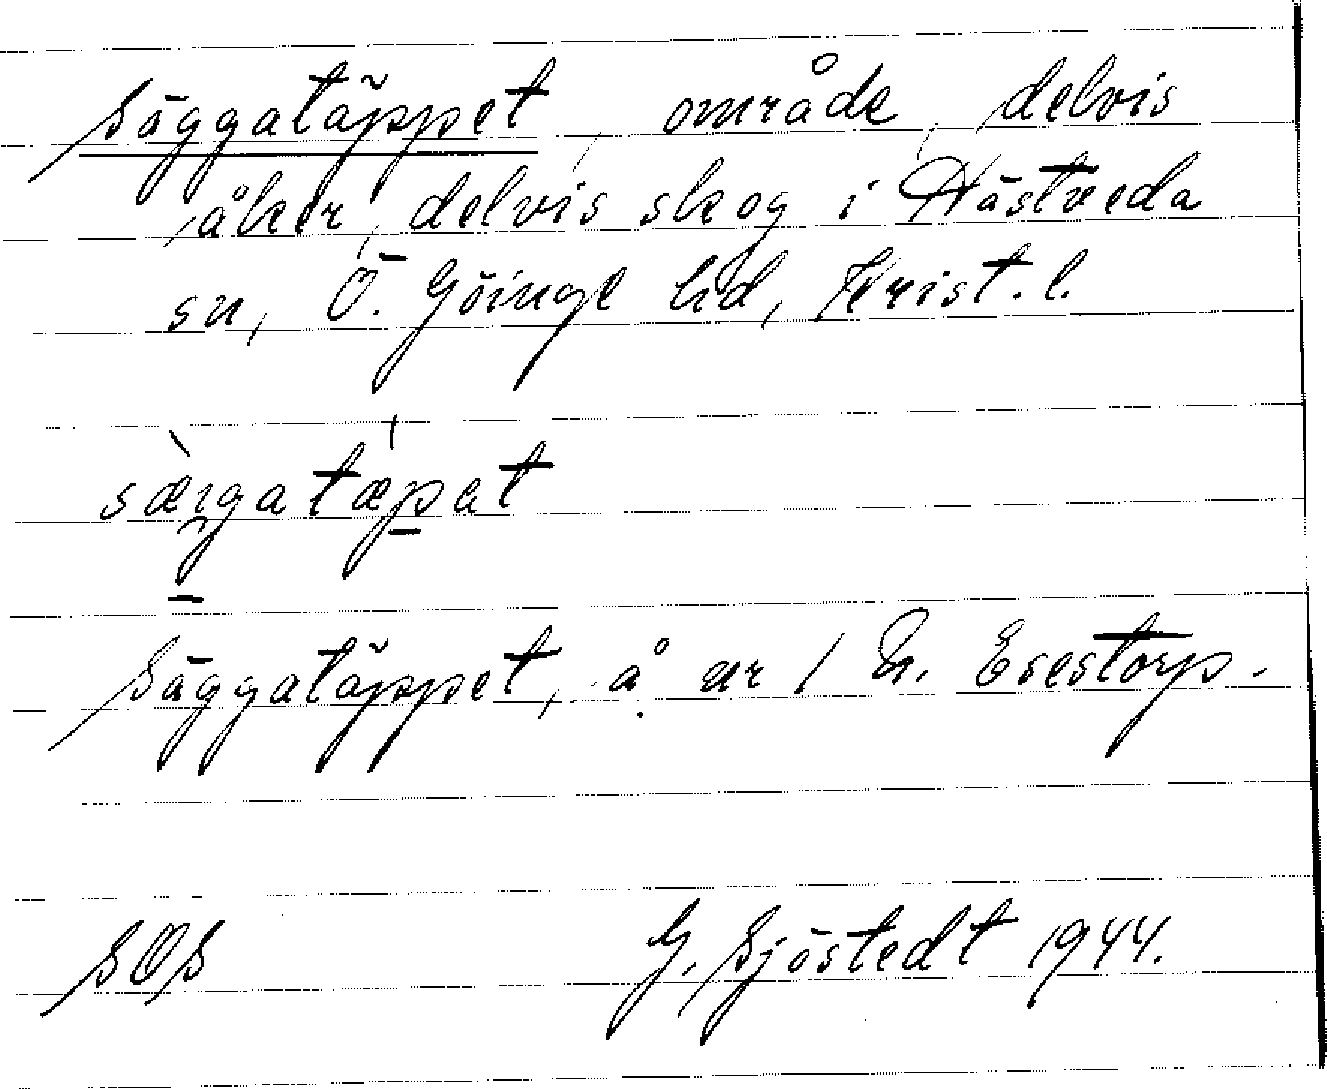 Säggatäppet, område, delvis
åker, delvis skog i Hästveda
sn, Ö. Göinge hd, Krist. l.
sæ̀gatæ̍pat
Säggatäppet, å nr 1 n. Esestorp.
SOS G. Sjöstedt 1944.